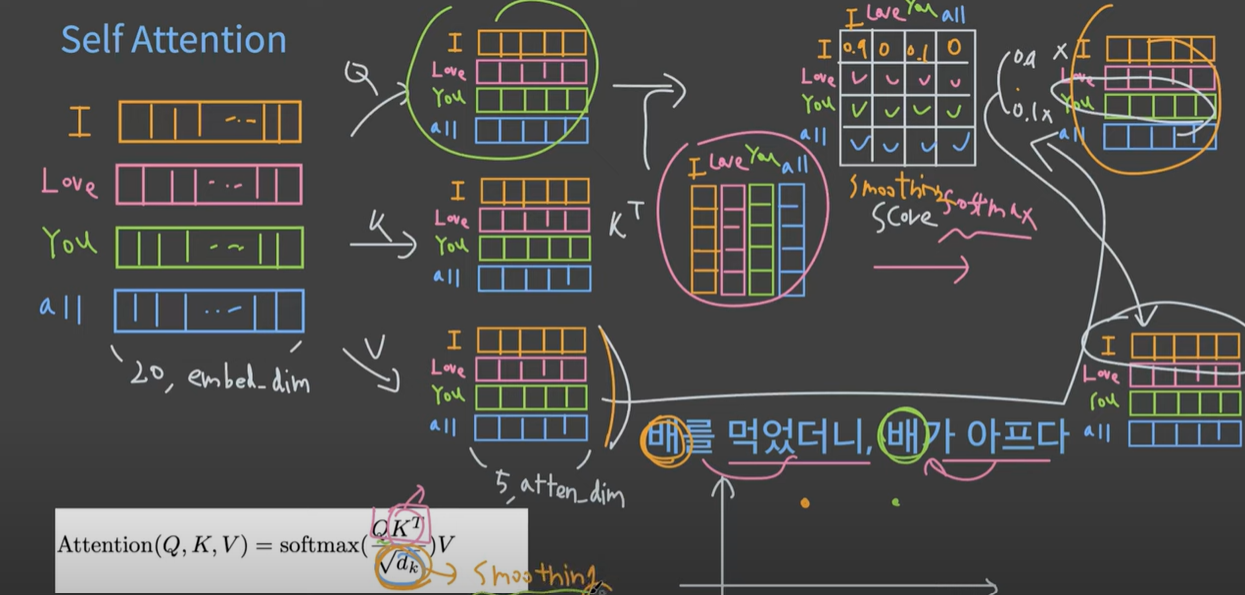 Self Attention
I
Love
You
all
20, embed_dim
Q
K
V
I
Love
You
all
I
Love
You
all
I
Love
You
all
5, atten_dim
K^T
I Love You all
I Love You all
I 0.9 0 0.1 0
Love
You
all
Smoothing
Score softmax
0.9 x
0.1x
I
Love
You
all
I
Love
You
all
배를 먹었더니, 배가 아프다
Attention(Q, K, V) = softmax(QK^T/√d_k)V
Smoothing